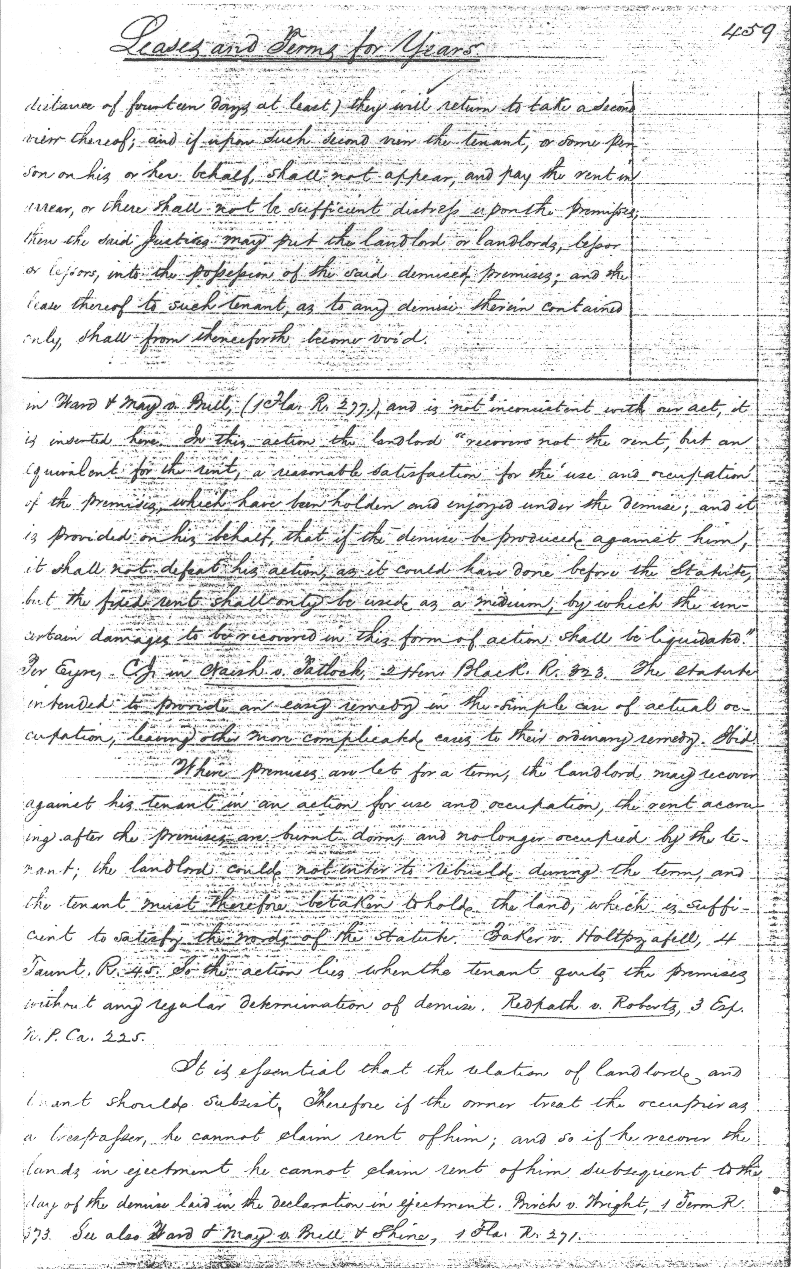 459
Leases and Terms for Years.
distance of fourteen days at least) they will return to take a second
view thereof; and if upon such second view the tenant, or some per
son on his or her behalf, shall not appear, and pay the rent in
arrear, or there shall not be sufficient distress upon the premises;
then the said Justices may put the landlord or landlords, lessor
or lessors, into the possession of the said demised premises; and the
lease thereof to such tenant, as to any demise therein contained
only, shall from thenceforth become void.
in Ward & May v. Bull, (1 Fla. R. 277), and is not inconsistent with our act, it
is inserted here. In this action the landlord "recovers not the rent, but an
equivalent for the rent, a reasonable satisfaction for the use and occupation
of the premises, which have been holden and enjoyed under the demise; and it
is provided on his behalf, that if the demise be produced against him,
it shall not defeat his action, as it could have done before the Statute,
but the fixed rent shall only be used as a medium, by which the un-
certain damages to be recovered in this form of action shall be liquidated."
Per Eyre, C.J. in Naish v. Tatlock, 2 Hen. Black. R. 323. The statute
intended to provide an easy remedy in the simple case of actual oc-
cupation, leaving other more complicated cases to their ordinary remedy. Ibid
When premises are let for a term, the landlord may recover
against his tenant in an action for use and occupation, the rent accru-
ing after the premises are burnt down, and no longer occupied by the te-
nant; the landlord could not enter to rebuild during the term, and
the tenant must therefore be taken to hold the land, which is suffi-
cient to satisfy the words of the statute. Baker v. Holtpzafell, 4
Taunt. R. 45. So the action lies when the tenant quits the premises
without any regular determination of demise. Redpath v. Roberts, 3 Esp.
N. P. Ca. 225.
It is essential that the relation of landlord and
tenant should subsist. Therefore if the owner treat the occupier as
a trespasser, he cannot claim rent of him; and so if he recover the
lands in ejectment he cannot claim rent of him subsequent to the
day of the demise laid in the declaration in ejectment. Birch v. Wright, 1 Term R.
373. See also Ward & May v. Bull & Shine, 1 Fla. R. 271.